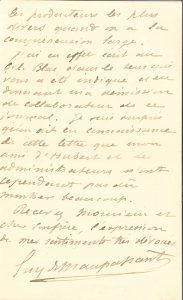 les producteurs les plus
divers quand on a la
compréhension large.
J'ai en effet écrit au
Gil Blas dans le sens qui
vous a été indiqué et en
donnant ma démission
de collaborateur de ce
journal. Je suis surpris
qu'on ait eu connaissance
de cette lettre que mon
ami d'Hubert et les
administrateurs n'ont
cependant pas dû
montrer beaucoup.
Recevez, Monsieur et
cher confrère, l'expression
de mes sentiments très dévoués
Guy de Maupassant